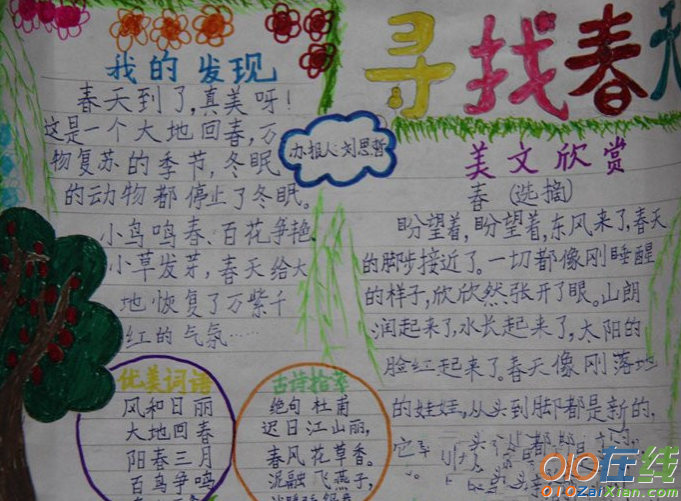 寻找春天
我的发现
春天到了,真美呀!
这是一个大地回春,万
物复苏的季节,冬眠
的动物都停止了冬眠。
小鸟鸣春、百花争艳、
小草发芽,春天给大
地恢复了万紫千
红的气氛……
办报人:刘思哲
美文欣赏
春(选摘)
盼望着,盼望着,东风来了,春天
的脚步接近了。一切都像刚睡醒
的样子,欣欣然张开了眼。山朗
润起来了,水长起来了,太阳的
脸红起来了。春天像刚落地
的娃娃,从头到脚都是新的,
它
优美词语
风和日丽
大地回春
阳春三月
百鸟争鸣
古诗推荐
绝句 杜甫
迟日江山丽,
春风花草香。
泥融飞燕子,
010在线
010ZaiXian.com